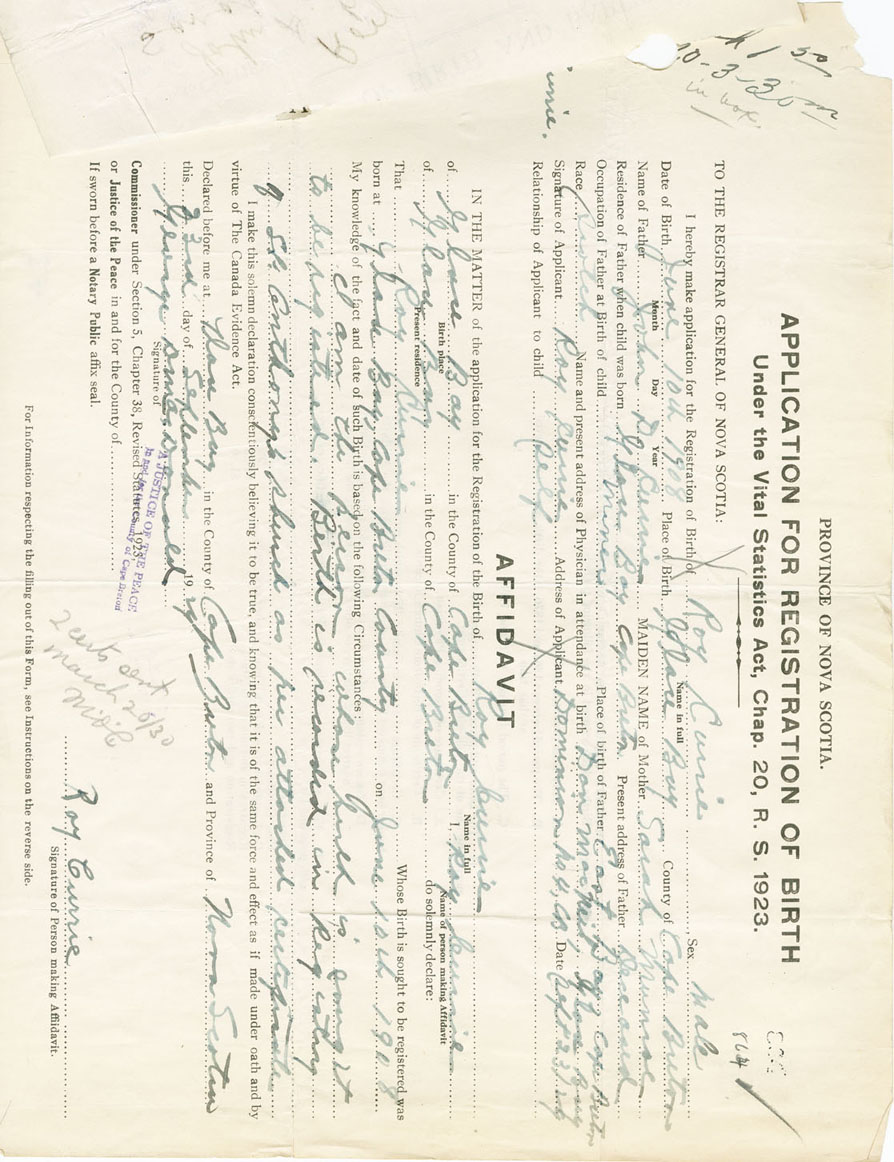 PROVINCE OF NOVA SCOTIA.
APPLICATION FOR REGISTRATION OF BIRTH
Under the Vital Statistics Act, Chap. 20, R. S. 1923.
864
TO THE REGISTRAR GENERAL OF NOVA SCOTIA.
I hereby make application for the Registration of Birth of Roy Currie Sex Male
Name in full
Date of Birth June 10th 1908 Place of Birth Glace Bay County of Cape Breton
Month Day Year
Name of Father John D Currie MAIDEN NAME of Mother Sarah Munroe
Residence of Father when child was born Glace Bay Cape Breton Present address of Father Deceased
Occupation of Father at Birth of child Miner Place of birth of Father East Bay Cape Breton
Race Scotch Name and present address of Physician in attendance at birth Dan Glace Bay
Signature of Applicant Roy Currie Address of Applicant Dominion No 4 CB Date Sept 23rd
Relationship of Applicant to child Self
AFFIDAVIT
IN THE MATTER of the application for the Registration of the Birth of Roy Currie
Name in full
of Glace Bay in the County of Cape Breton I, Roy Currie
Birth place Name of person making Affidavit
of Glace Bay in the County of Cape Breton do solemnly declare:
Present residence
That Roy Currie Whose Birth is sought to be registered was
born at Glace Bay, Cape Breton County on June 10th 1908
My knowledge of the fact and date of such Birth is based on the following Circumstances
I am the person whose birth is sought
to be registered. Birth is recorded in Registry
of St. Anthony's Church as per attached certificate
I make this solemn declaration conscientiously believing it to be true, and knowing that it is of the same force and effect as if made under oath and by
virtue of The Canada Evidence Act.
Declared before me at Glace Bay in the County of Cape Breton and Province of Nova Scotia
this 23rd day of September 1929
George
Signature of
A JUSTICE OF THE PEACE
In and for the County of Cape Breton
Commissioner under Section 5, Chapter 38, Revised Statutes, 1923
or Justice of the Peace in and for the County of
If sworn before a Notary Public affix seal.
Roy Currie
Signature of Person making Affidavit.
2 certs sent
March 20/30
For Information respecting the filling out of this Form, see Instructions on the reverse side.